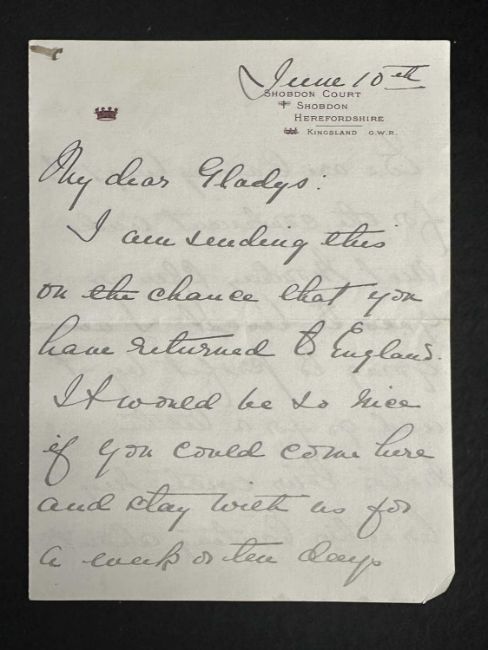 June 10th
SHOBDON COURT
SHOBDON
HEREFORDSHIRE
KINGSLAND G.W.R.
My dear Gladys:
I am sending this
on the chance that you
have returned to England.
It would be so nice
if you could come here
and stay with us for
a week or ten days